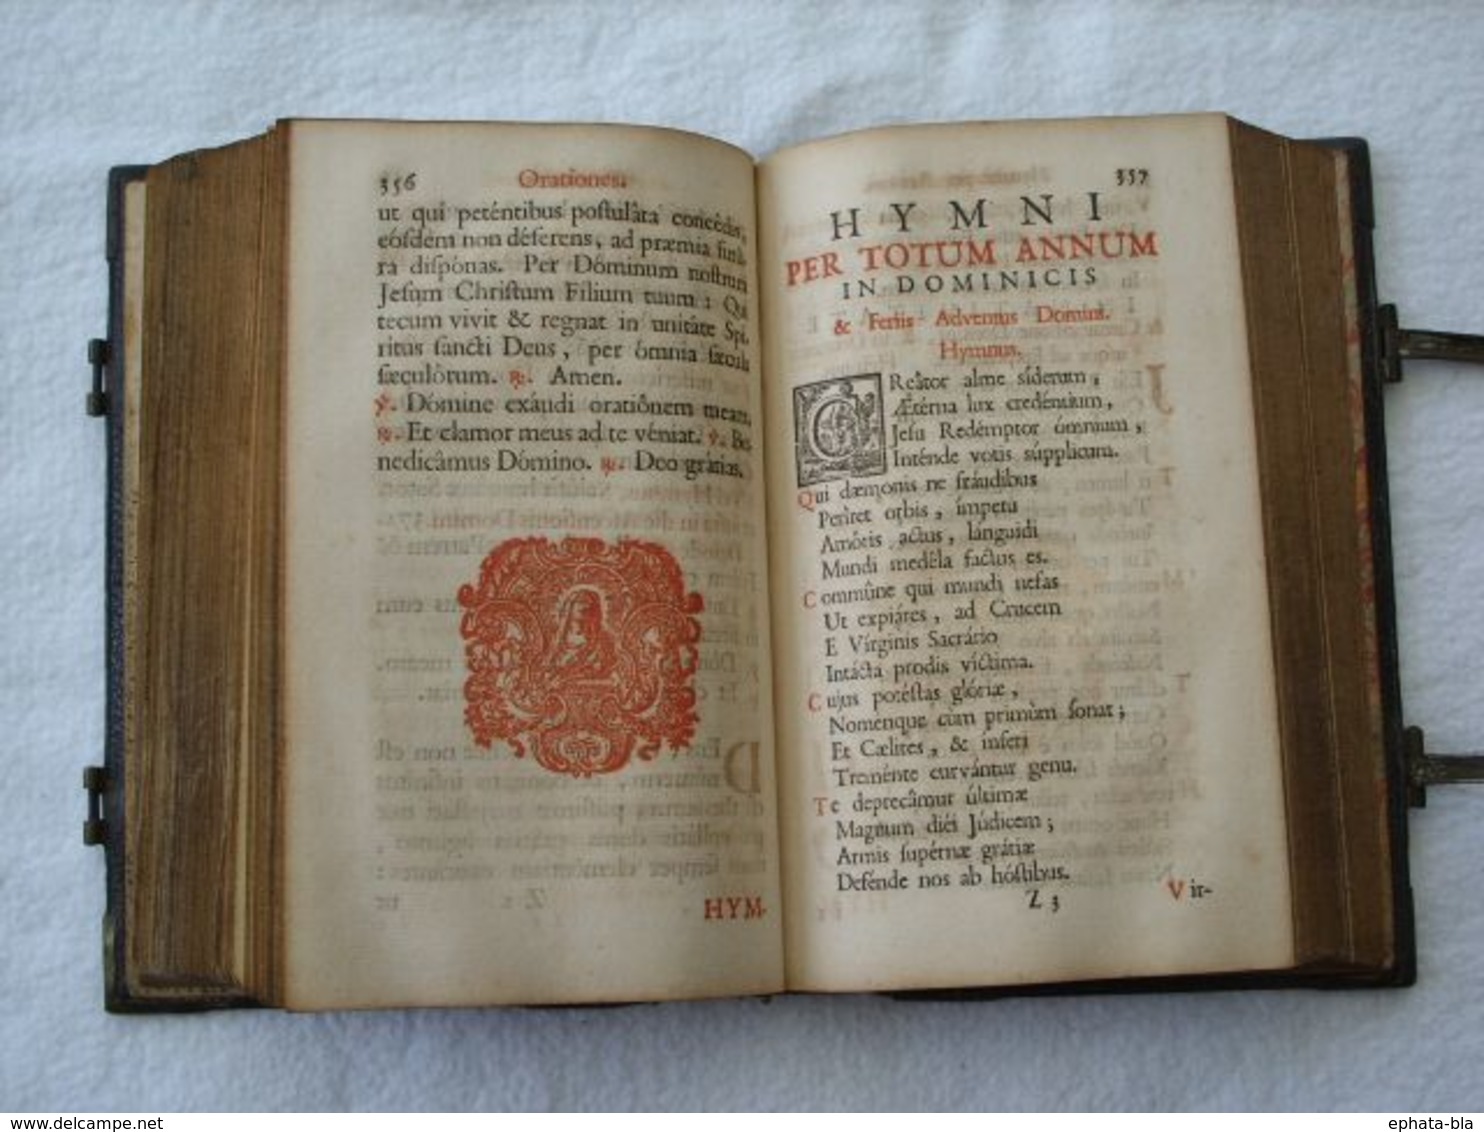 356 Orationes.
ut qui peténtibus poſtulâta concêdis,
eóſdem non déſerens, ad præmia futú-
ra diſpónas. Per Dóminum noſtrum
Jeſum Chriſtum Filium tuum: Qui
tecum vivit & regnat in unitâte Spi-
ritus ſancti Deus, per ómnia ſæcula
ſæculôrum. ℟. Amen.
℣. Dómine exáudi oratiônem meam,
℟. Et clamor meus ad te véniat. ℣. Be-
nedicâmus Dómino. ℟. Deo grátias.
HYM-
357
HYMNI
PER TOTUM ANNUM
IN DOMINICIS
& Feriis Adventus Domini.
Hymnus.
CReâtor alme síderum,
Ætérna lux credéntium,
Jeſu Redémptor ómnium,
Inténde votis súpplicum.
Qui dæmonis ne fráudibus
Perîret orbis, ímpetu
Amôris actus, lánguidi
Mundi medêla factus es.
Commûne qui mundi nefas
Ut expiáres, ad Crucem
E Vírginis Sacrário
Intácta prodis víctima.
Cujus potéſtas glóriæ,
Nomenque cùm primùm ſonat;
Et Cælites, & ínferi
Treménte curvántur genu.
Te deprecâmur últimæ
Magnum diéi Júdicem;
Armis ſupérnæ grátiæ
Defénde nos ab hóſtibus.
Z 3 Vir-
delcampe.net
ephata-bla